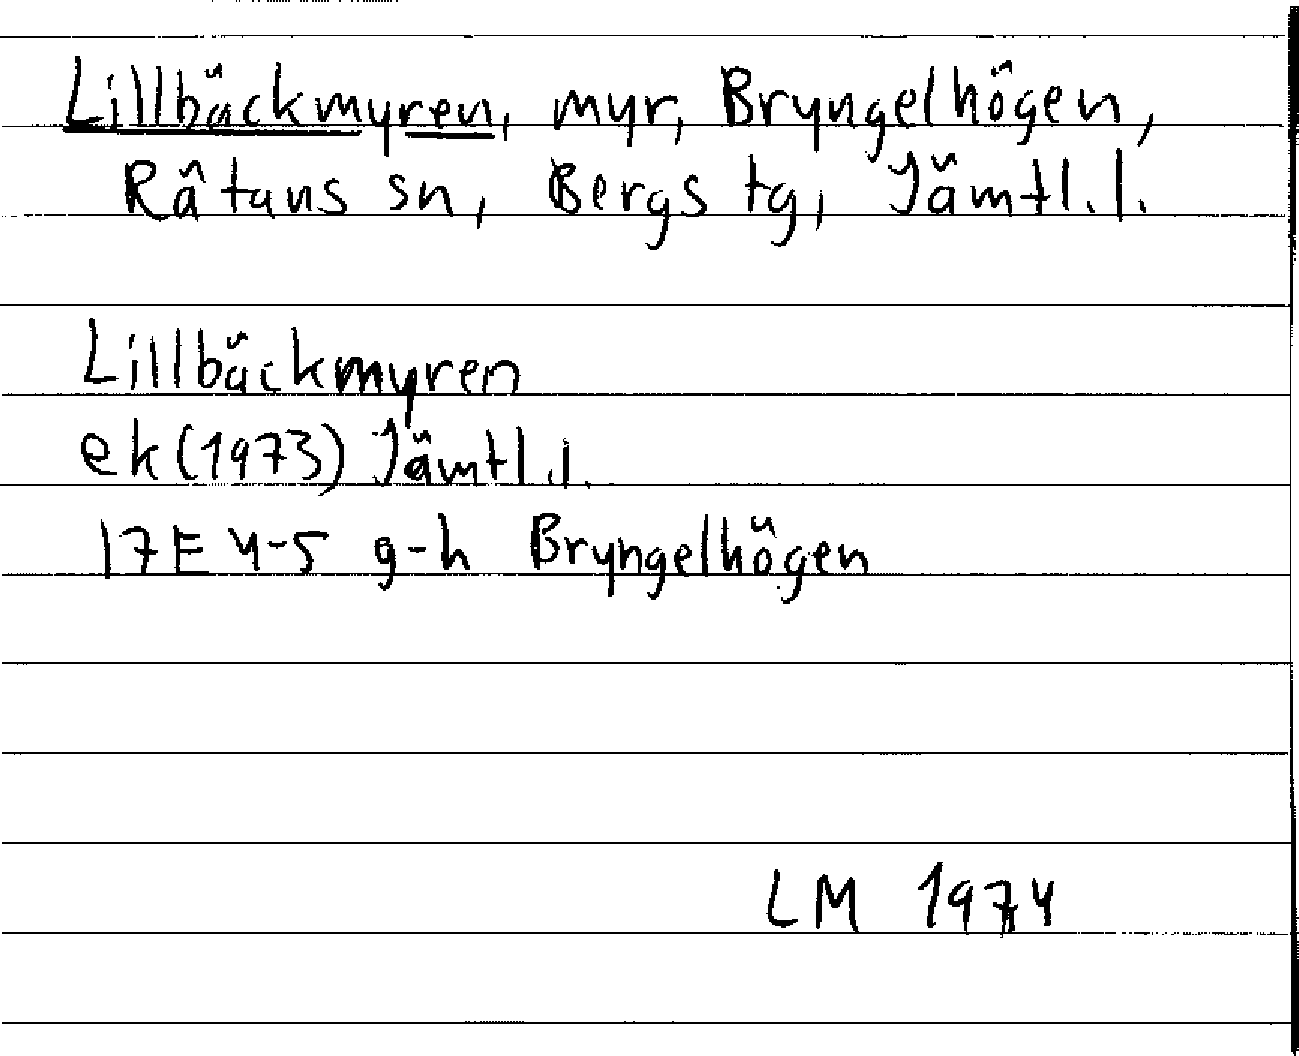 Lillbäckmyren, myr, Bryngelhögen,
Råtans sn, Bergs tg, Jämtl.l.
Lillbäckmyren
ek(1973) Jämtl.l.
17E 4-5 g-h Bryngelhögen
LM 1974